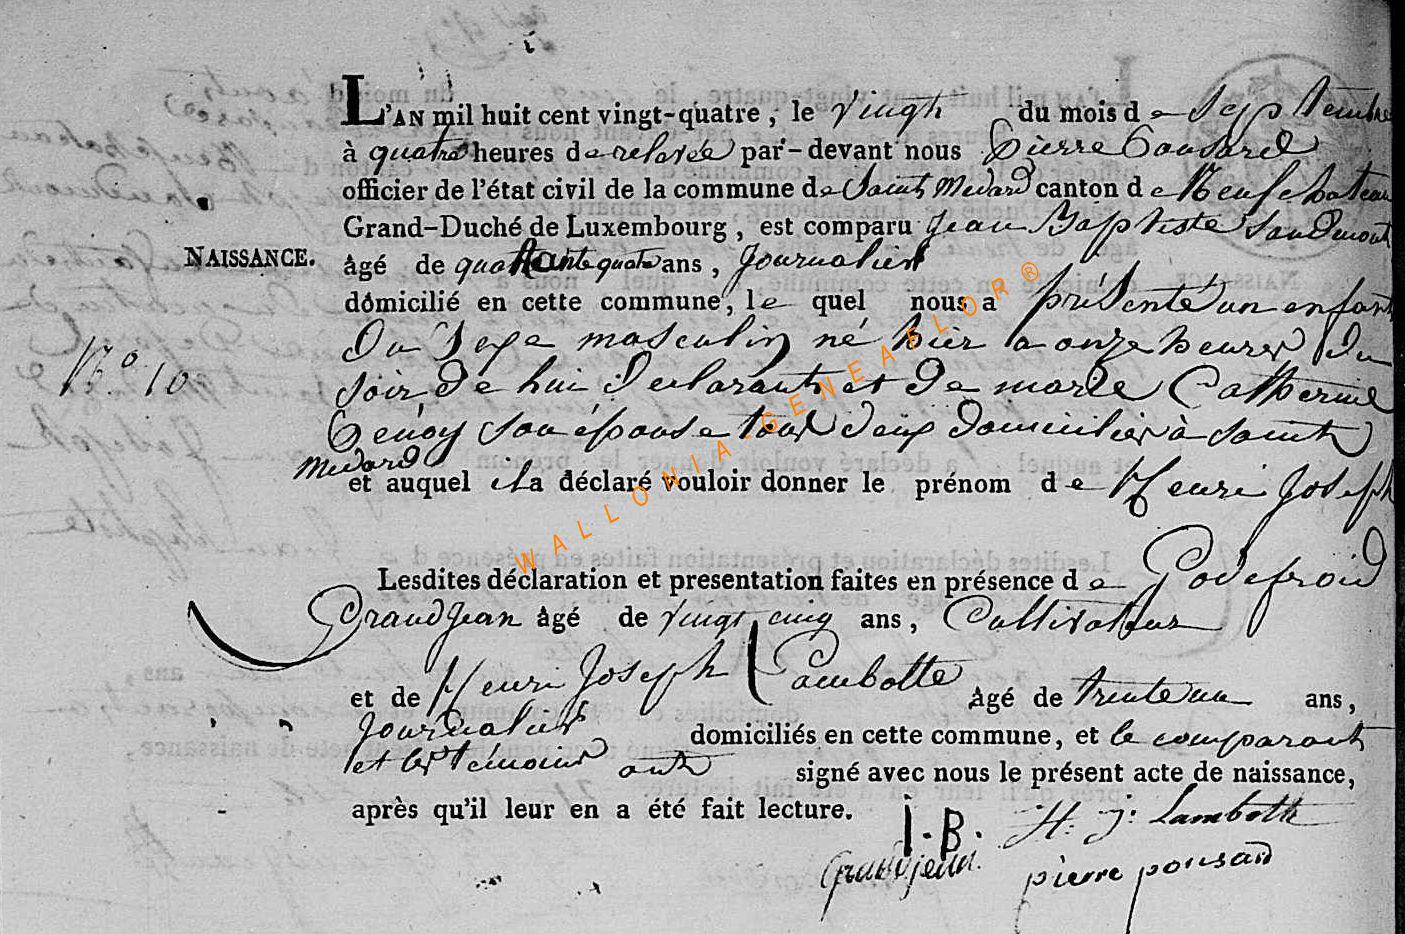 L'AN mil huit cent vingt-quatre, le vingt du mois de septembre
à quatre heures de relevée par-devant nous Pierre Ponsard
officier de l'état civil de la commune de Saint Medard canton de Neufchateau
Grand-Duché de Luxembourg, est comparu Jean Baptiste
NAISSANCE. âgé de quarante quatre ans, Journalier
domicilié en cette commune, le quel nous a présenté un enfant
Du Sexe masculin né hier a onze heures du
N.º 10 soir de lui Declarant et de marie Catherine
son épouse tous deux domiciliés à saint
Medard
et auquel il a déclaré vouloir donner le prénom de Henri Joseph
Lesdites déclaration et presentation faites en présence de Godefroid
GrandJean âgé de vingt cinq ans, Cultivateur
et de Henri Joseph Lambotte âgé de trente un ans,
Journalier domiciliés en cette commune, et le comparant
et les témoins ont signé avec nous le présent acte de naissance,
après qu'il leur en a été fait lecture.
J. B. H: J: Lambotte
Grandjean. pierre ponsard
WALLONIA-GENEAFLOR®